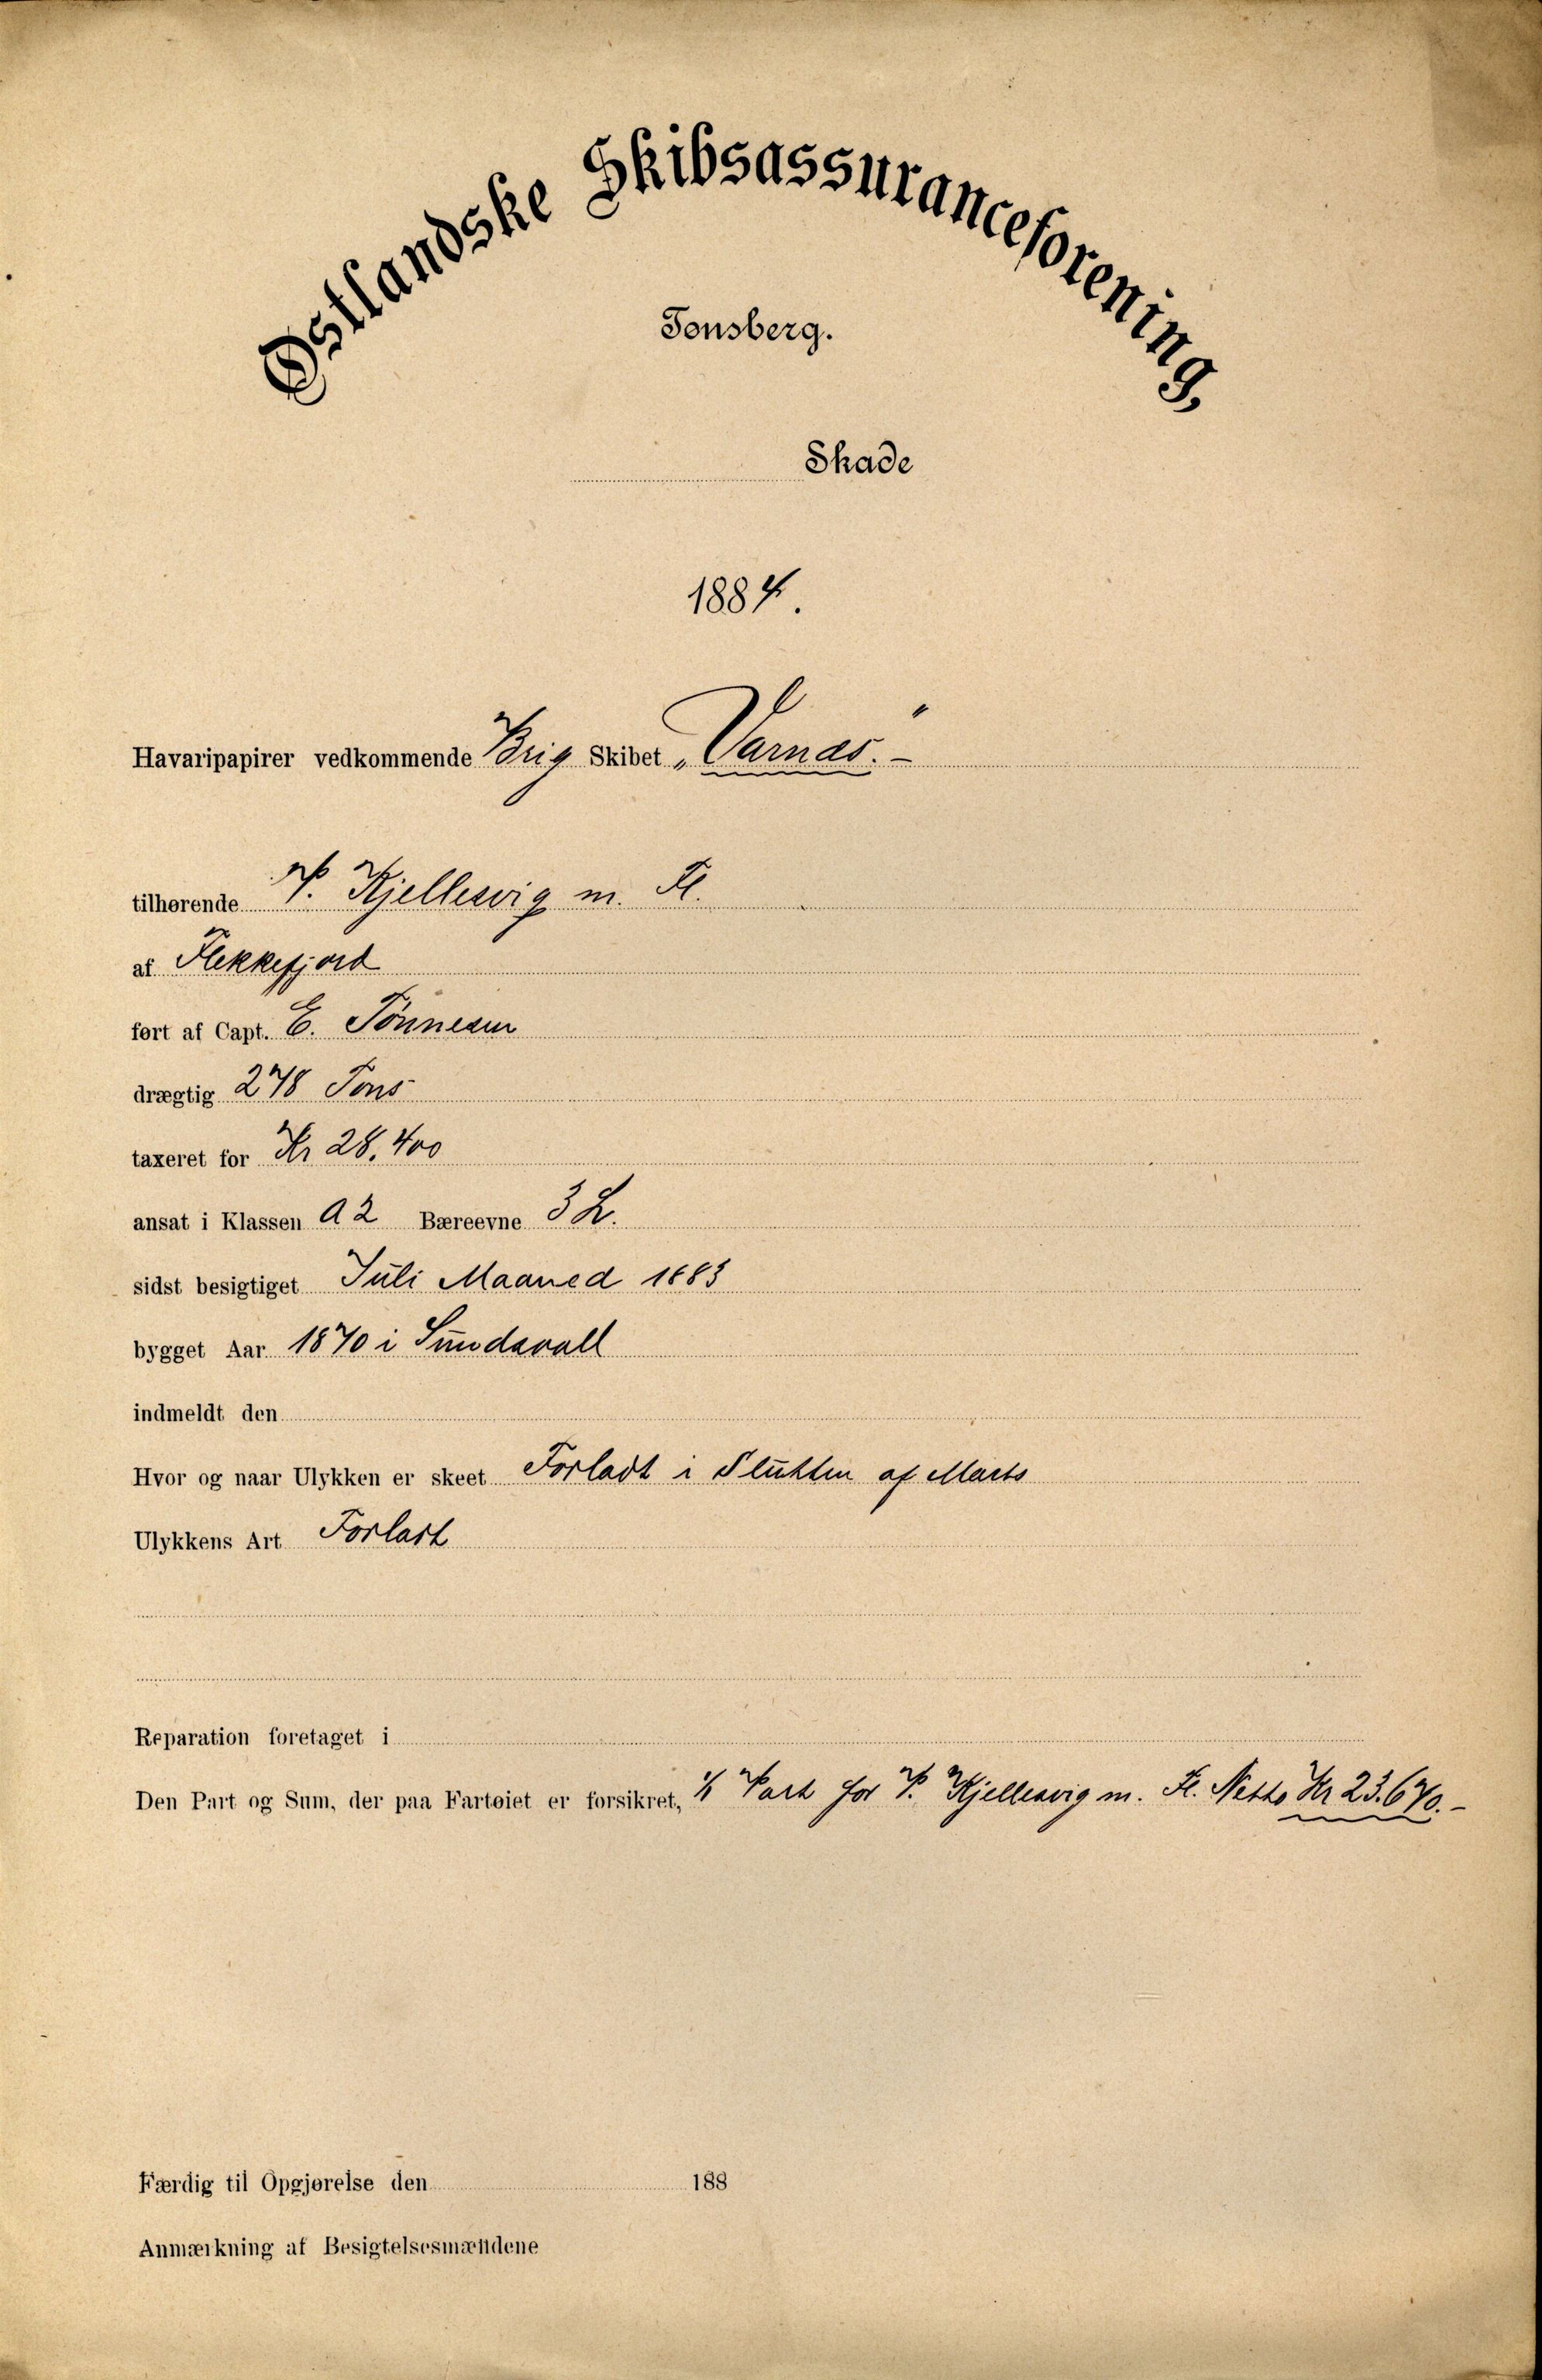 Østlandske Skibsassuranceforening,
Tønsberg.
Skade
1884.
Havaripapirer vedkommende Brig Skibet „Varnæs.“ –
tilhørende P. Kjellesvig m. Fl.
af Flekkefjord
ført af Capt. E. Tönnesen
drægtig 278 Tons
taxeret for Kr 28.400
ansat i Klassen A 2 Bæreevne 3 L.
sidst besigtiget Juli Maaned 1883
bygget Aar 1870 i Sundsvall
indmeldt den
Hvor og naar Ulykken er skeet Forladt i Slutten af Marts
Ulykkens Art Forladt
Reparation foretaget i
Den Part og Sum, der paa Fartøiet er forsikret, 1/1 Part for P. Kjellesvig m. Fl. Netto Kr 23.670.–
Færdig til Opgjørelse den 188
Anmærkning af Besigtelsesmændene